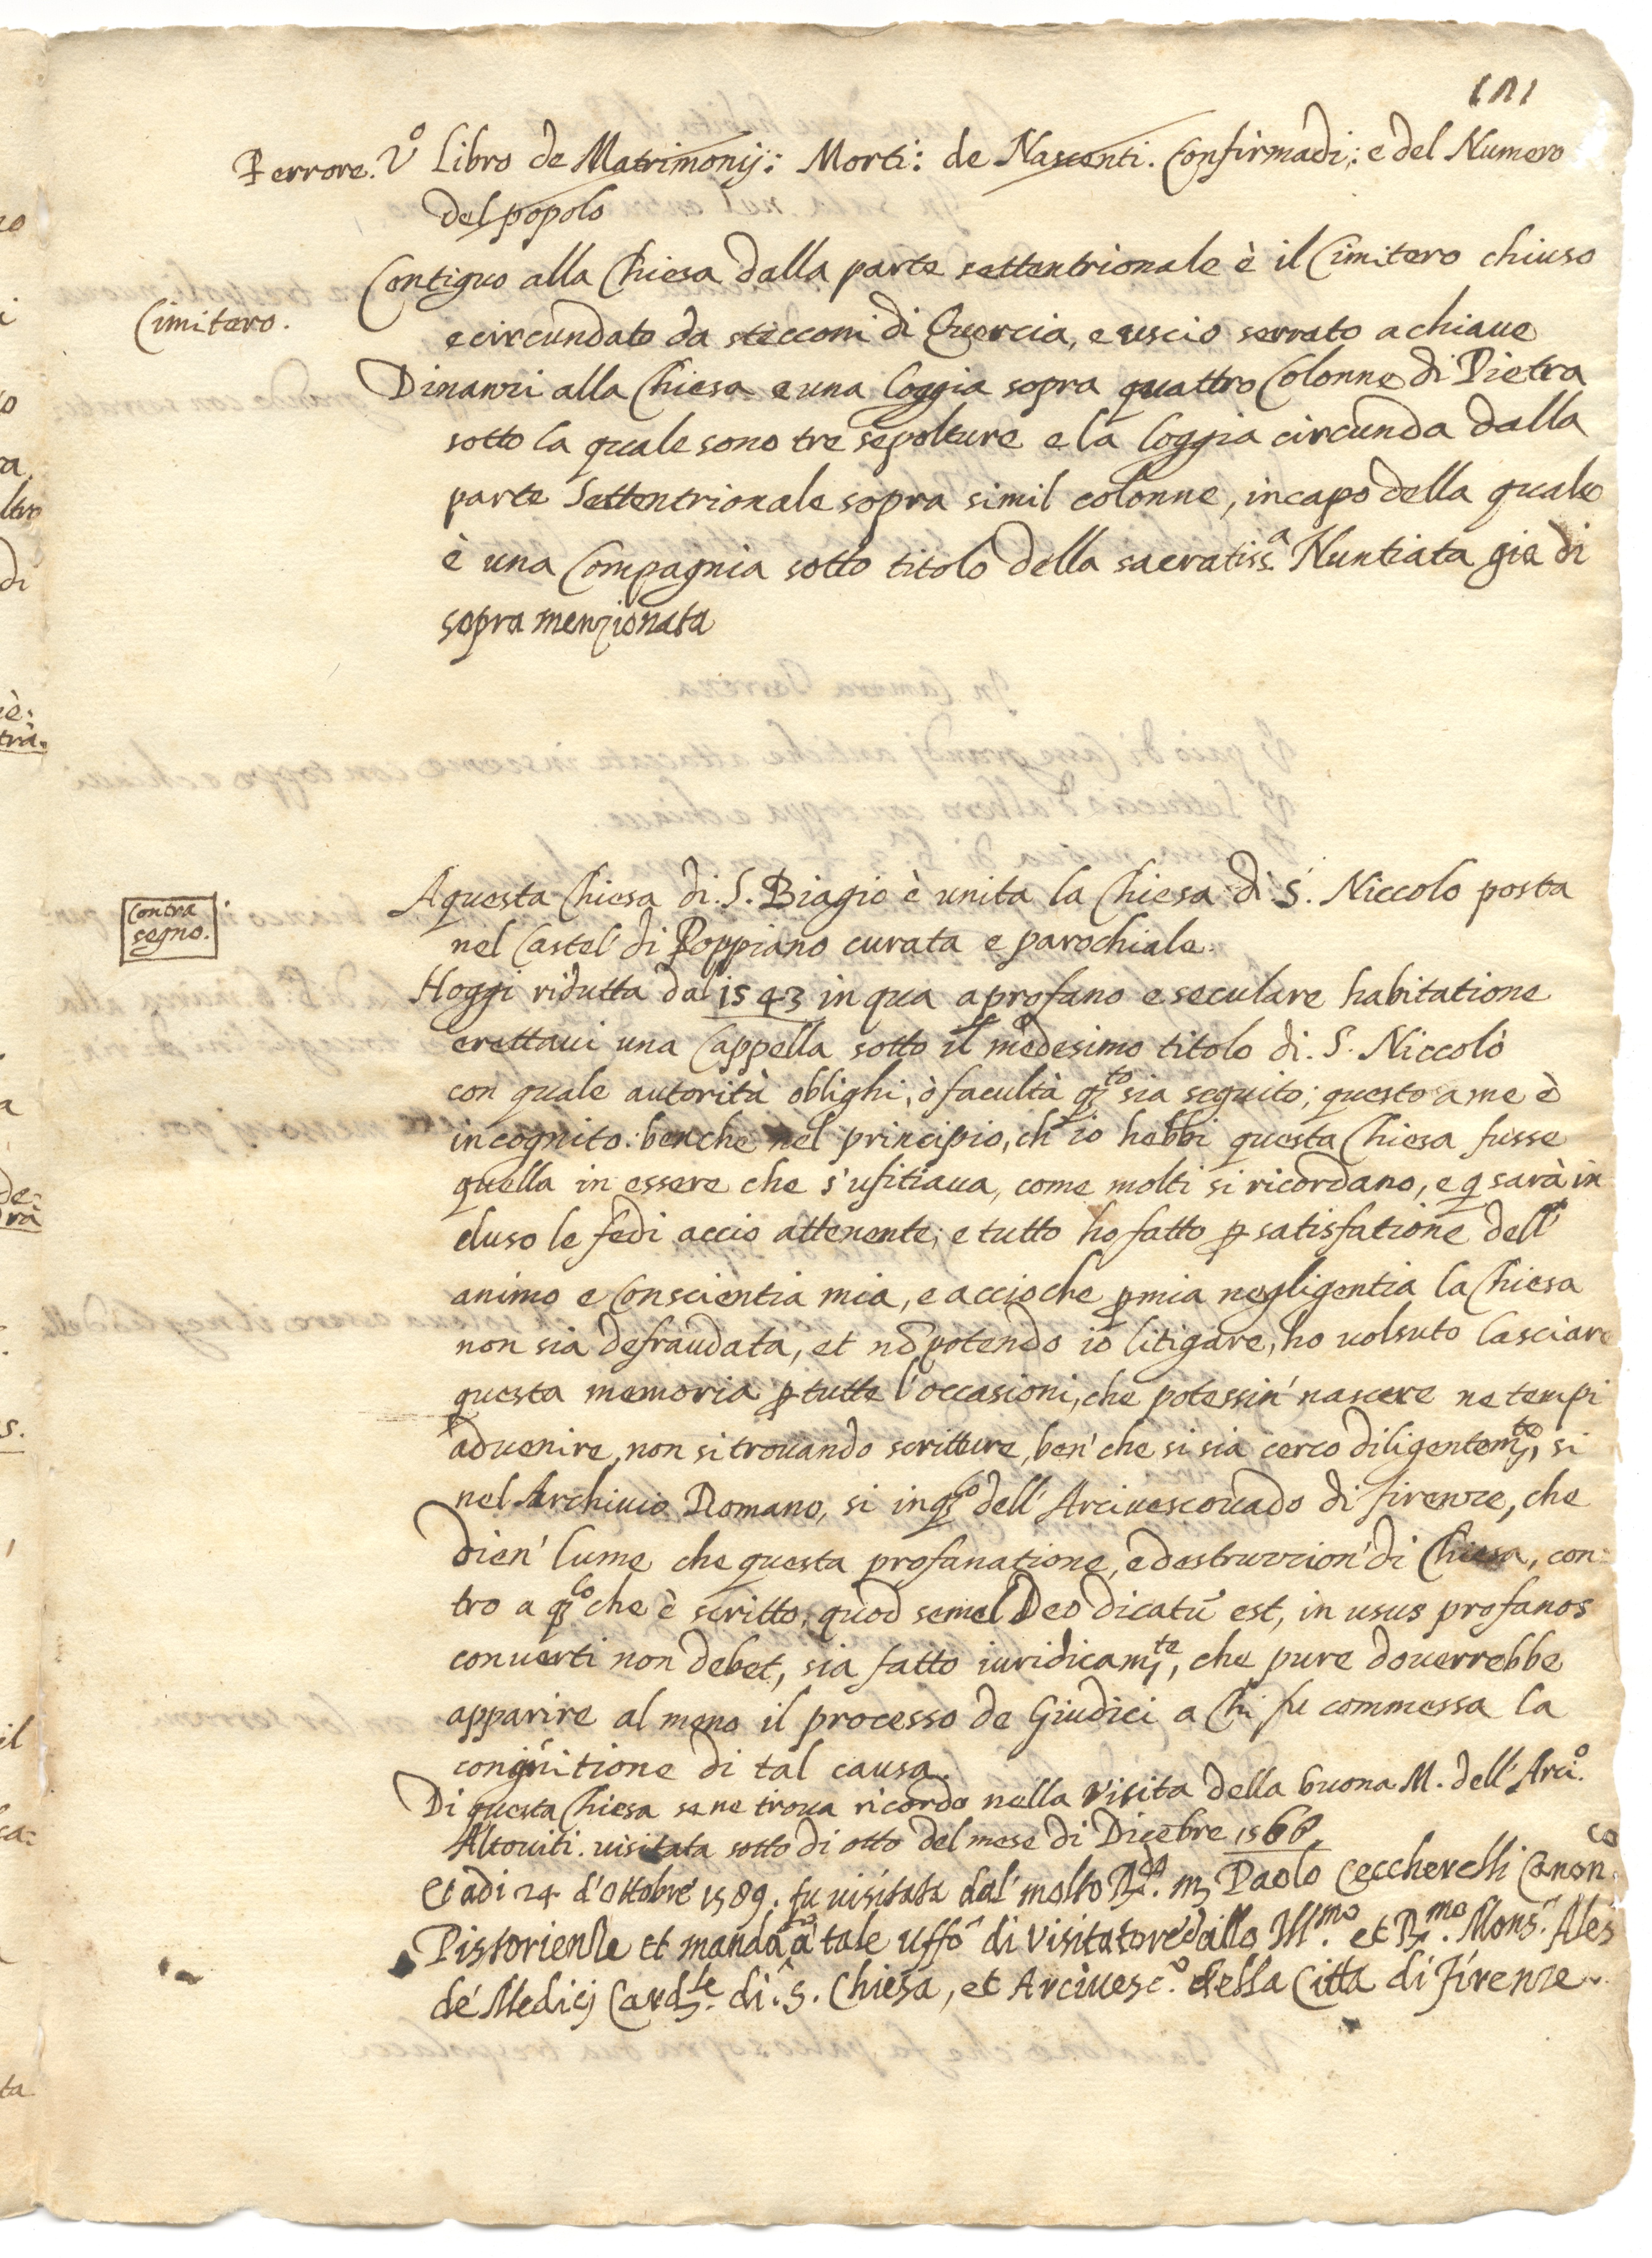 Per errore. Vº Libro de Matrimonij: Morti: de Nascenti. Confirmadi; e del Numero
del popolo
Contiguo alla Chiesa dalla parte settentrionale è il Cimitero chiuso
Cimitero.
e circundato da stecconi di Quercia, e uscio serrato a chiaue
Dinanzi alla Chiesa e una loggia sopra quattro Colonne di Pietra
sotto la quale sono tre sepolture e la loggia circunda dalla
parte Settentrionale sopra simil colonne, in capo della quale
è una Compagnia sotto titolo della sacratissª. Nuntiata gia di
sopra menzionata
A questa Chiesa di. S. Biagio è unita la Chiesa di S. Niccolo posta
Contra
segno.
nel Castel' di Poppiano curata e parochiale.
Hoggi ridutta dal 1543 in qua a profano e seculare habitatione
erettaui una Cappella sotto il medesimo titolo di. S. Niccolò
con quale autorità oblighi, ò facultà qto sia seguito; questo a me è
incognito: benche nel principio, ch' io hebbi questa Chiesa fusse
quella in essere che s'ufitiaua, come molti si ricordano, e q sarà in
cluso le fedi accio attenente; e tutto ho fatto p satisfatione dell'
animo e Conscientia mia, e accioche p mia negligentia la Chiesa
non sia defraudata, et nō potendo io litigare, ho uolsuto lasciare
questa memoria p tutte l'occasioni, che potessin' nascere ne tempi
aduenire, non si trouando scritture, ben' che si sia cerco diligentemte, si
nel Archiuio Romano, si in qo dell' Arciuescouado di firenze, che
dien' lume che questa profanatione, e destruzzion' di Chiesa, con=
tro a qlo che è scritto, quod semel Deo dicatū est, in usus profanos
conuerti non debet, sia fatto iuridicamte, che pure douerrebbe
apparire al meno il processo de Giudici a Chi fu commessa la
congnitione di tal causa.
Di questa Chiesa se ne troua ricordo nella Visita della buona M. dell' Arcio.
Altouiti. uisitata sotto di otto del mese di Dicēbre 1568.
Et adi 24 d'ottobre 1589. fu uisitata dal' molto Rdo. m Paolo Ceccherelli Canonco.
Pistoriense et mandato à tale uffo di Visitatore dallo Illmo. et Rmo. Monsr. Ales
de' Medicj Cardle. di. S. Chiesa, et Arciuesco. della Citta di Firenze